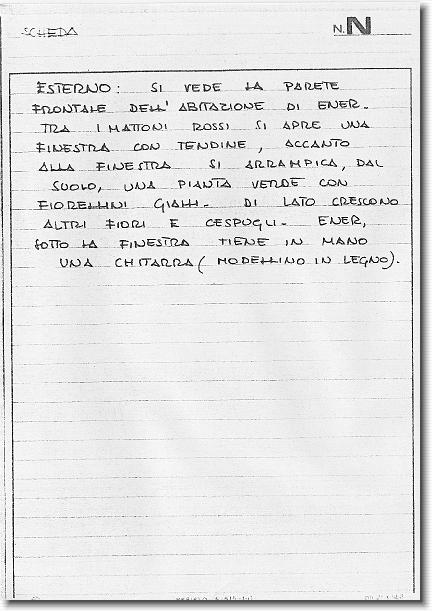 SCHEDA
N. N
ESTERNO: SI VEDE LA PARETE
FRONTALE DELL'ABITAZIONE DI ENER.
TRA I MATTONI ROSSI SI APRE UNA
FINESTRA CON TENDINE, ACCANTO
ALLA FINESTRA SI ARRAMPICA, DAL
SUOLO, UNA PIANTA VERDE CON
FIORELLINI GIALLI. DI LATO CRESCONO
ALTRI FIORI E CESPUGLI. ENER,
SOTTO LA FINESTRA TIENE IN MANO
UNA CHITARRA (MODELLINO IN LEGNO).